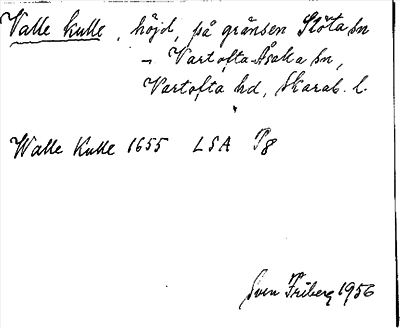 Valle kulle, höjd, på gränsen Slöta sn
- Vartofta-Åsaka sn,
Vartofta hd, Skarab. l.
Walle Kulle 1655 LSA P8
Sven Friberg 1956